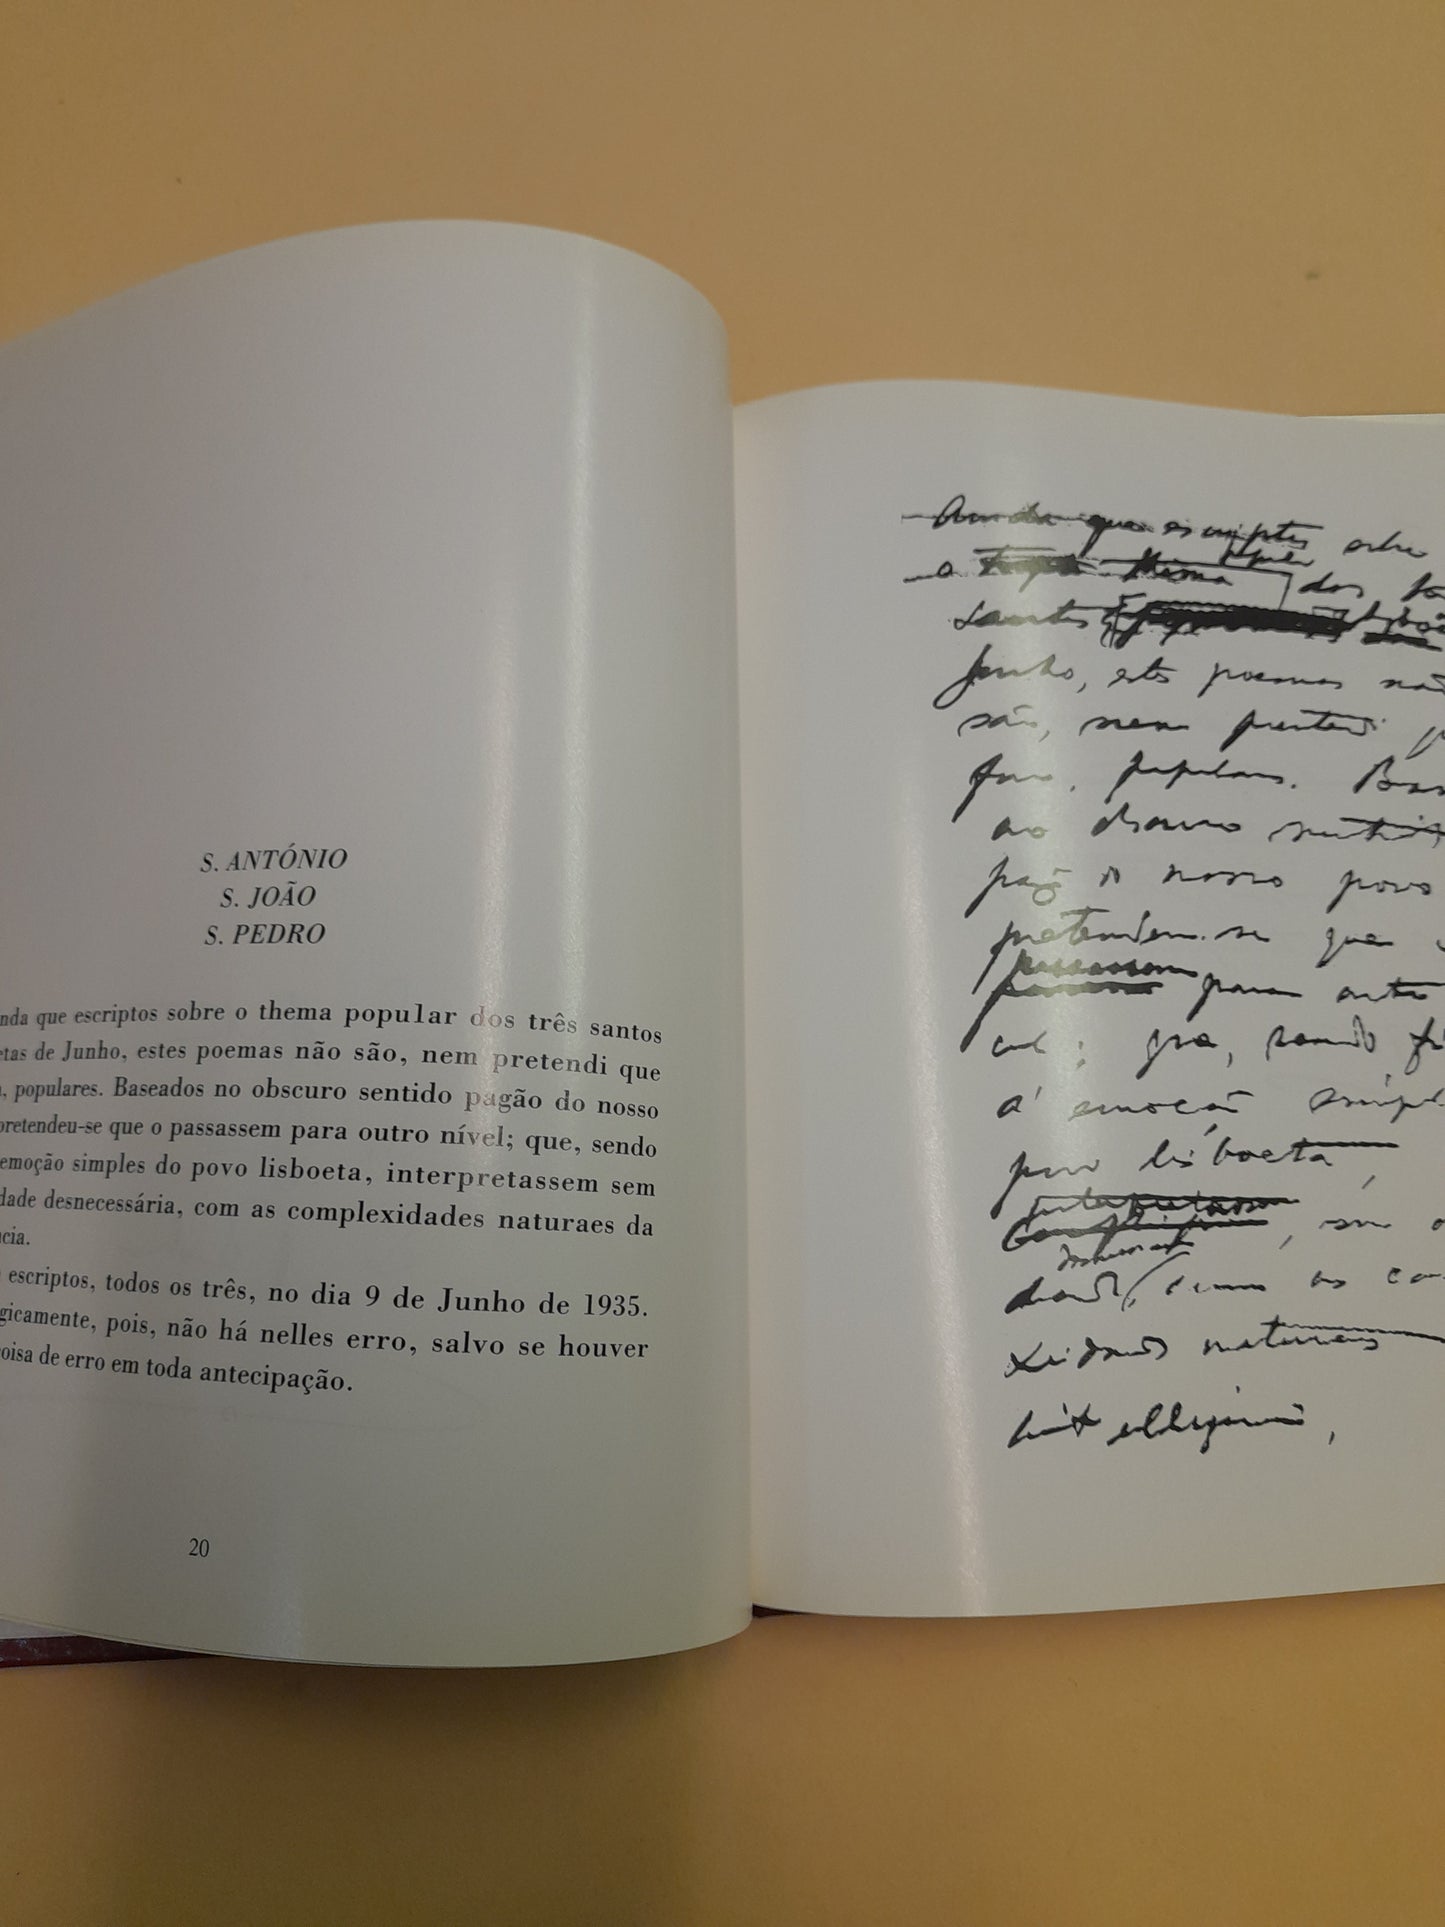 S. ANTÓNIO
S. JOÃO
S. PEDRO
nda que escriptos sobre o thema popular dos três santos
etas de Junho, estes poemas não são, nem pretendi que
, populares. Baseados no obscuro sentido pagão do nosso
pretendeu-se que o passassem para outro nível; que, sendo
emoção simples do povo lisboeta, interpretassem sem
dade desnecessária, com as complexidades naturaes da
cia.
escriptos, todos os três, no dia 9 de Junho de 1935.
gicamente, pois, não há nelles erro, salvo se houver
oisa de erro em toda antecipação.
20
Ainda que escriptos sobre
o thema popular dos
santos
Junho, estes poemas não
são, nem pretendi
populares.
ao obscuro sentido
pagão do nosso povo
pretendeu-se que
passassem para outro
que, sendo
á emoção
povo lisboeta,
interpretassem
, sem
com as
naturaes